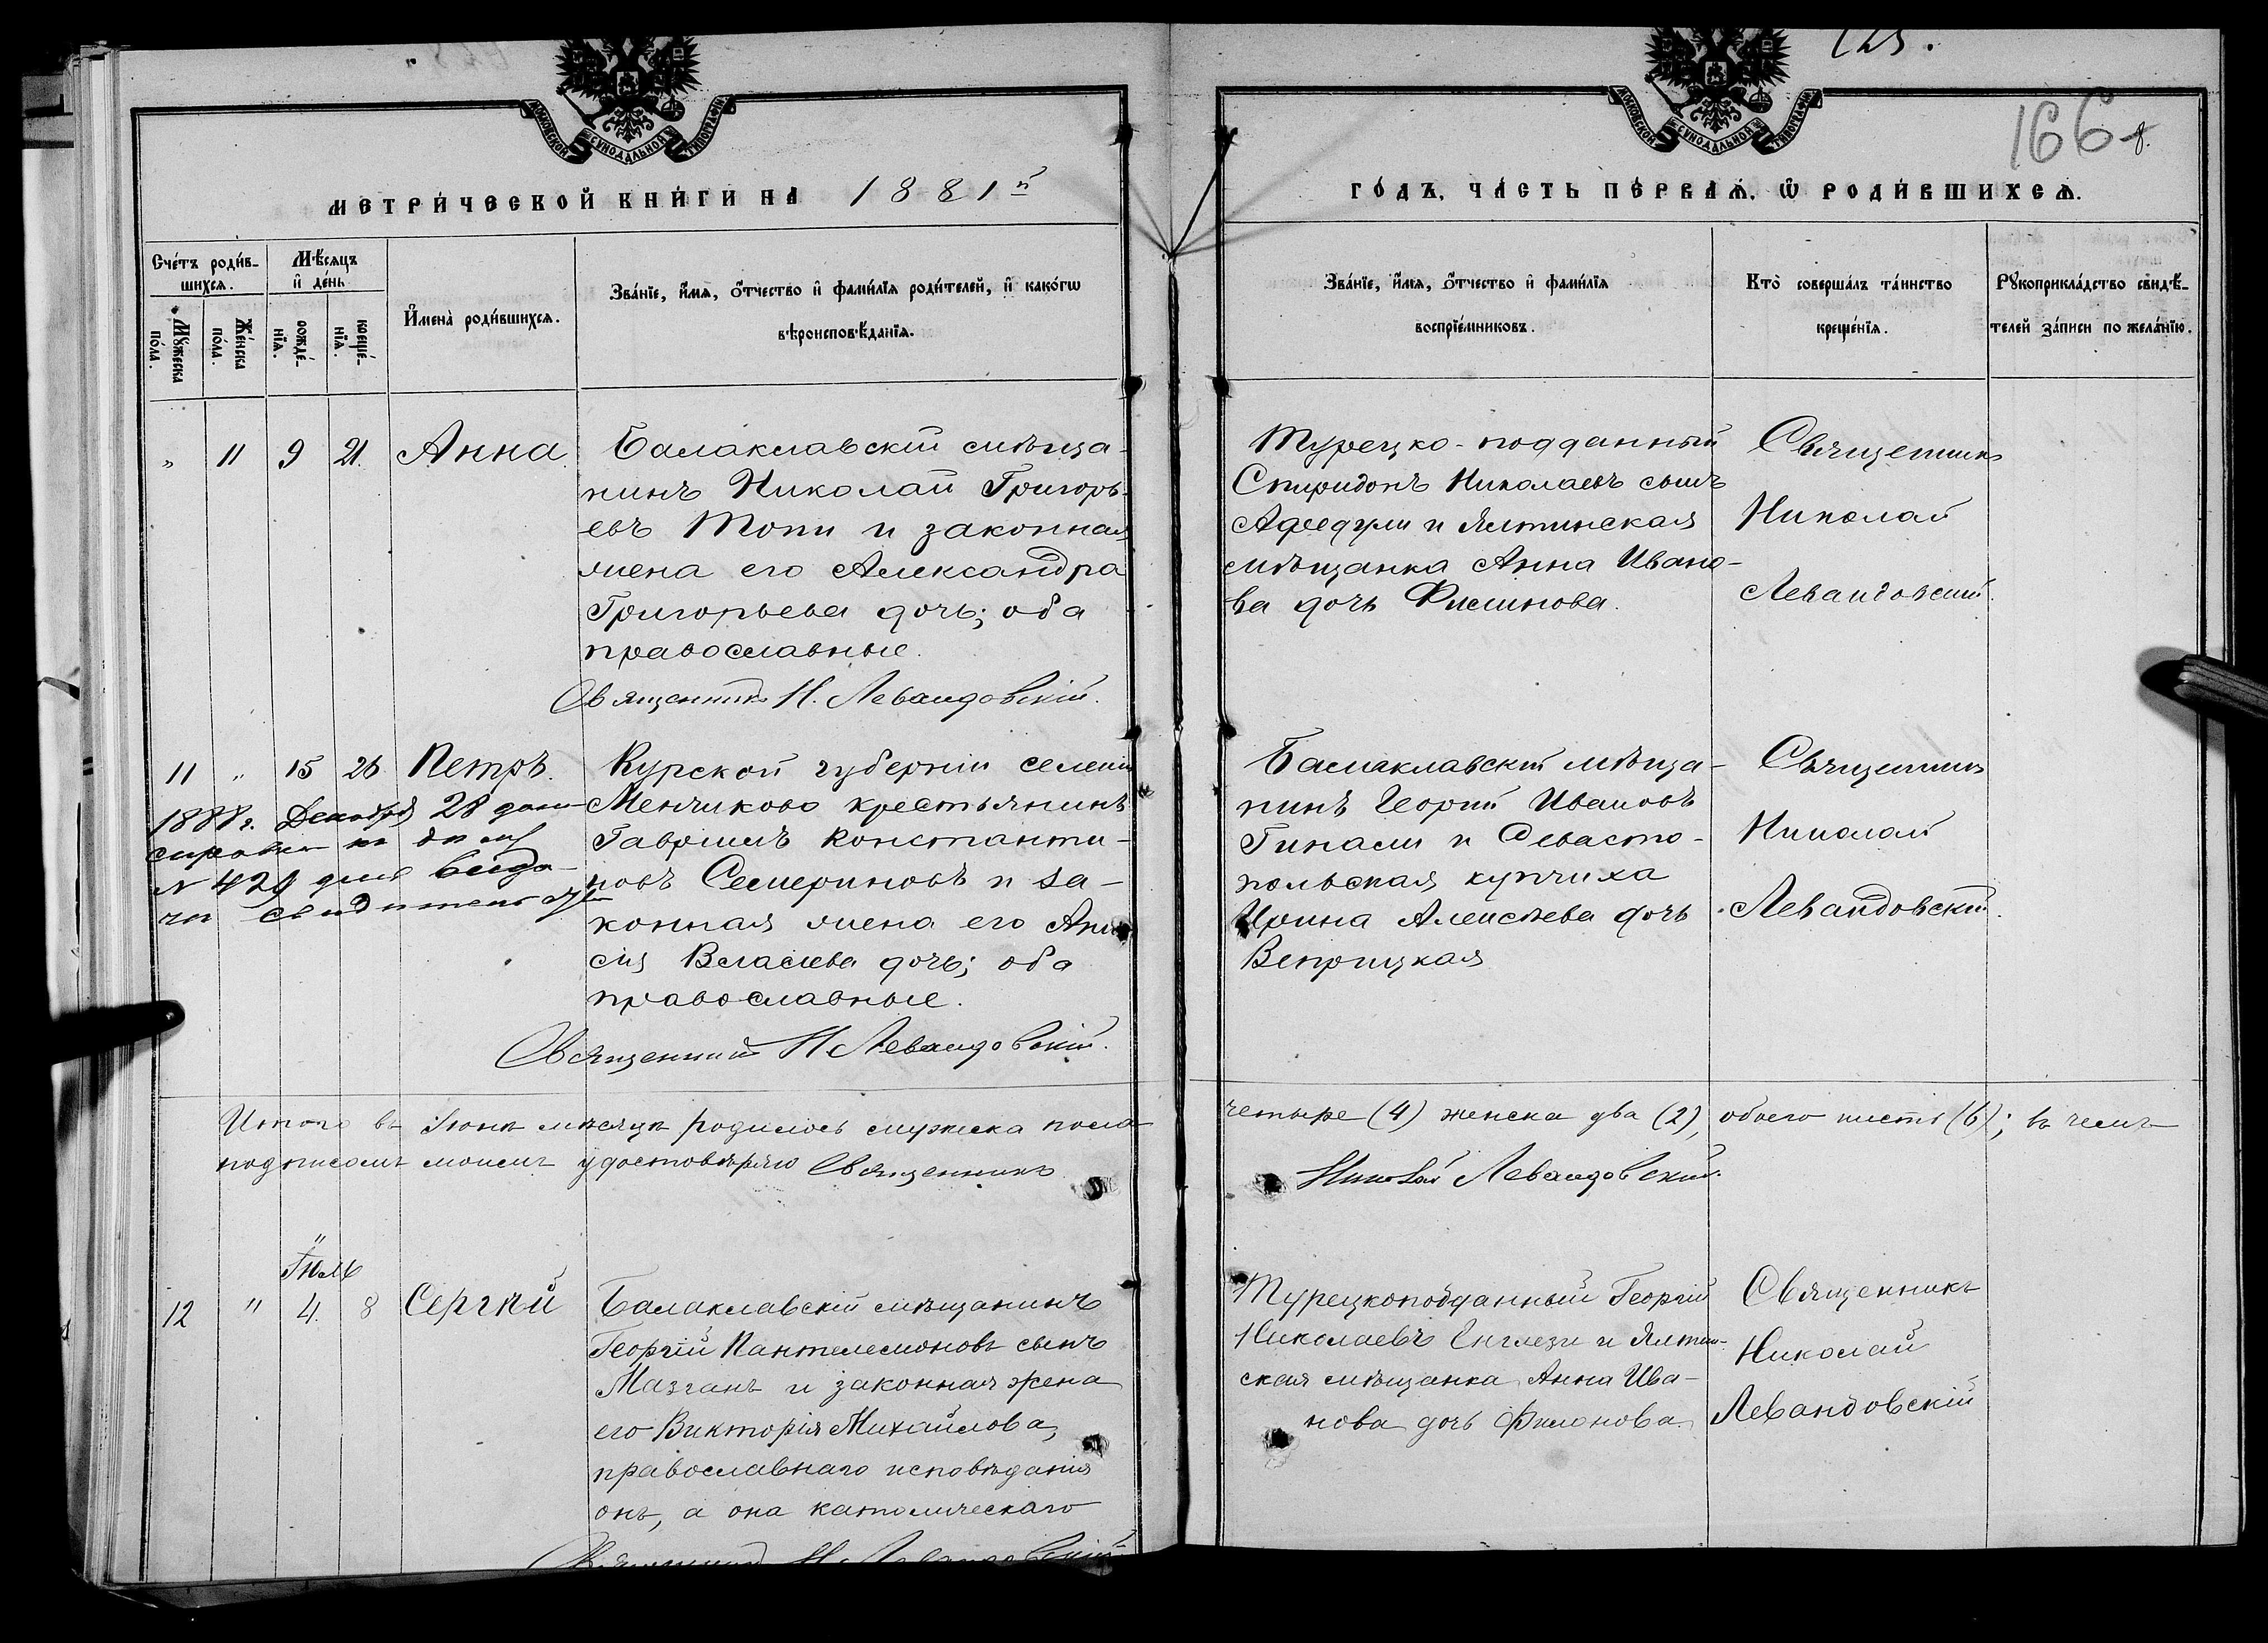 125.
166
МОСКОВСКОЙ СѴНОДАЛЬНОЙ ТИПОГРАФІИ
МОСКОВСКОЙ СѴНОДАЛЬНОЙ ТИПОГРАФІИ
МЕТРИ́ЧЕСКОЙ КНИ́ГИ НА 1881й
ГО́ДЪ, ЧА́СТЬ ПЕ́РВАѦ, Ѿ РОДИ́ВШИХСѦ.
Сче́тъ роди́в-
шихсѧ.
Мѣ́сѧцъ
и҆ де́нь
Мꙋ́жеска по́ла.
Же́нска по́ла.
рожде́-нїѧ.
креще́-нїѧ.
И҆мена̀ роди́вшихсѧ.
Зва́нїе, и҆́мѧ, о҆́тчество и҆ фами́лїѧ роди́телей, и҆ како́гѡ
вѣроисповѣ́данїѧ.
Зва́нїе, и҆́мѧ, о҆́тчество и҆ фами́лїѧ
воспрїе́мниковъ.
Кто̀ соверша́лъ та́инство
креще́нїѧ.
Рꙋкоприкла́дство свидѣ́-
телей за́писи по жела́нїю.
" 11 9 21. Анна.
Балаклавскій мѣща-
нинъ Николай Григорь-
евъ Топи и законная
жена его Александра
Григорьева дочь; оба
православные.
Священникъ Н. Левандовскій.
Турецко-подданный
Спиридонъ Николаевъ сынъ
Афедули и Ялтинская
мѣщанка Анна Ивано-
ва дочь Филинова.
Священникъ
Николай
Левандовскій.
11 " 15 26 Петръ.
1888г. Декабря 28 дня
справка по
N 429 для выда-
чи свидетельства
Курской губерніи селенія
Менчиково крестьянинъ
Гавріилъ Константи-
новъ Семериновъ и за-
конная жена его Ани-
сія Власіева дочь; оба
православные.
Священникъ Н Левандовскій.
Балаклавскій мѣща-
нинъ Георгій Ивановъ
Гинали и Севасто-
польская купчиха
Ирина Алексѣева дочь
Веприцкая
Священникъ
Николай
Левандовскій.
Итого въ Іюнѣ мѣсяцѣ родилось мужеска пола
четыре (4) женска два (2), обоего шесть (6); въ чемъ
подписомъ моимъ удостовѣряю Священникъ
Николай Левандовскій.
Іюль
12 " 4. 8 Сергѣй
Балаклавскій мѣщанинъ
Георгій Пантелеемоновъ сынъ
Мазганъ и законная жена
его Викторія Михайлова,
православнаго исповѣданія
онъ, а она католическаго
Священникъ Н Левандовскій
Турецкоподданный Георгій
Николаевъ Енглези и Ялтин-
ская мѣщанка Анна Ива-
нова дочь Филонова.
Священникъ
Николай
Левандовскій